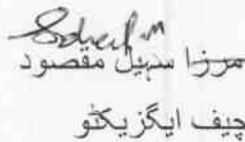 مرزا سہیل مقصود
چیف ایگزیکٹو